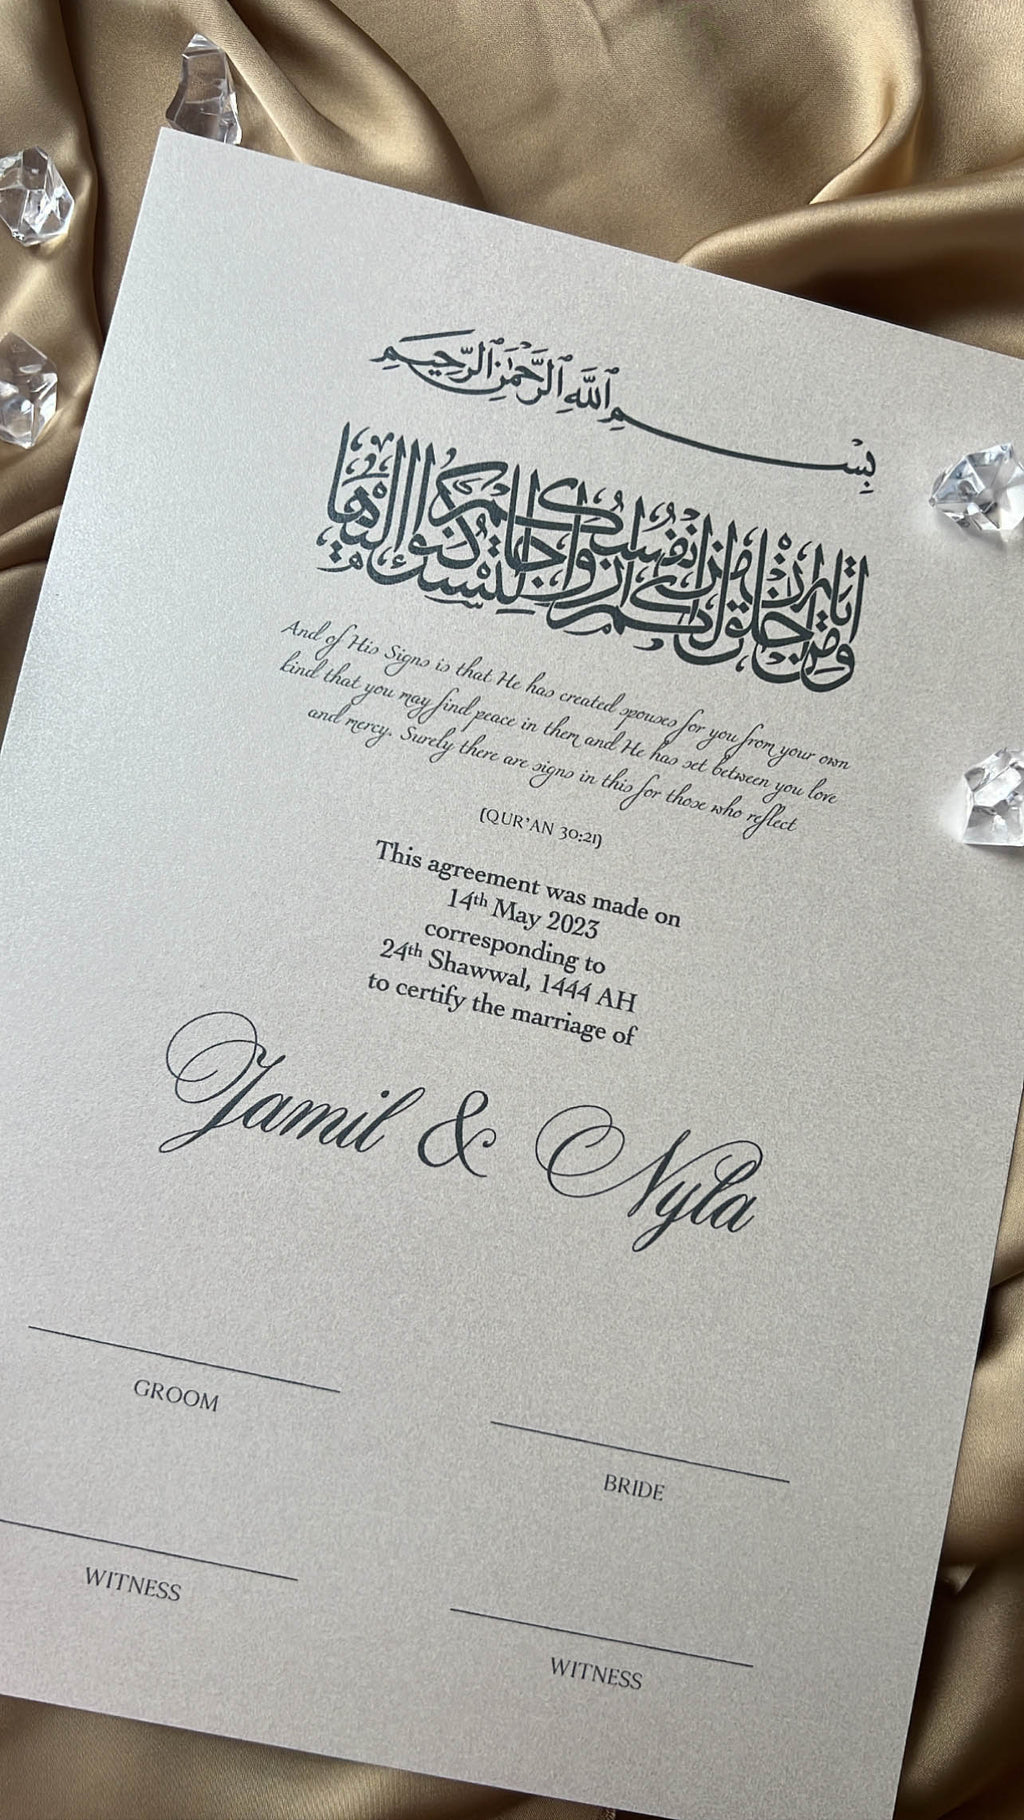 بِسْمِ اللَّهِ الرَّحْمَٰنِ الرَّحِيمِ
ومن آياته أن خلق لكم من أنفسكم أزواجا لتسكنوا إليها
And of His Signs is that He has created spouses for you from your own
kind that you may find peace in them and He has set between you love
and mercy. Surely there are signs in this for those who reflect
(QUR'AN 30:21)
This agreement was made on
14th May 2023
corresponding to
24th Shawwal, 1444 AH
to certify the marriage of
Jamil & Nyla
GROOM
BRIDE
WITNESS
WITNESS